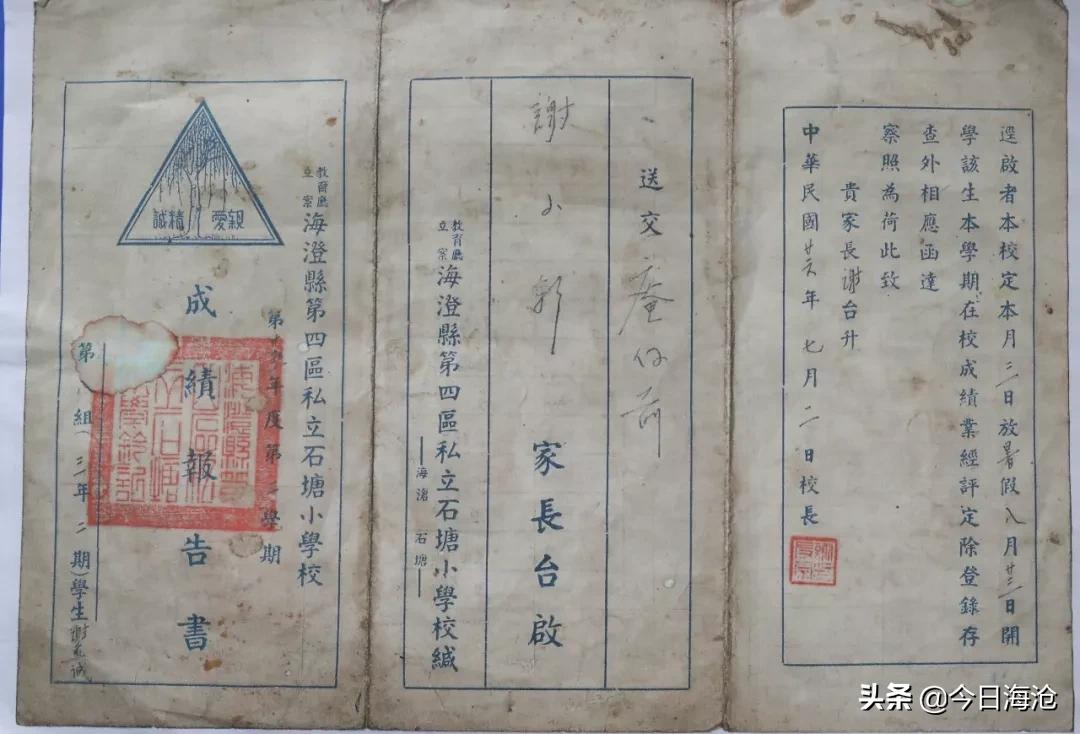 逕啟者本校定本月三日放暑假八月廿三日開
學該生本學期在校成績業經評定除登錄存
查外相應函達
察照為荷此致
貴家長謝台升
中華民國廿六年七月二日校長
送交
謝
家長台啟
教育廳
立案
海澄縣第四區私立石塘小學校緘
海滄石塘
教育廳
立案
海澄縣第四區私立石塘小學校
年度第二學期
親愛精誠
成績報告書
第組(三年二期)學生謝誠
头条 @今日海沧